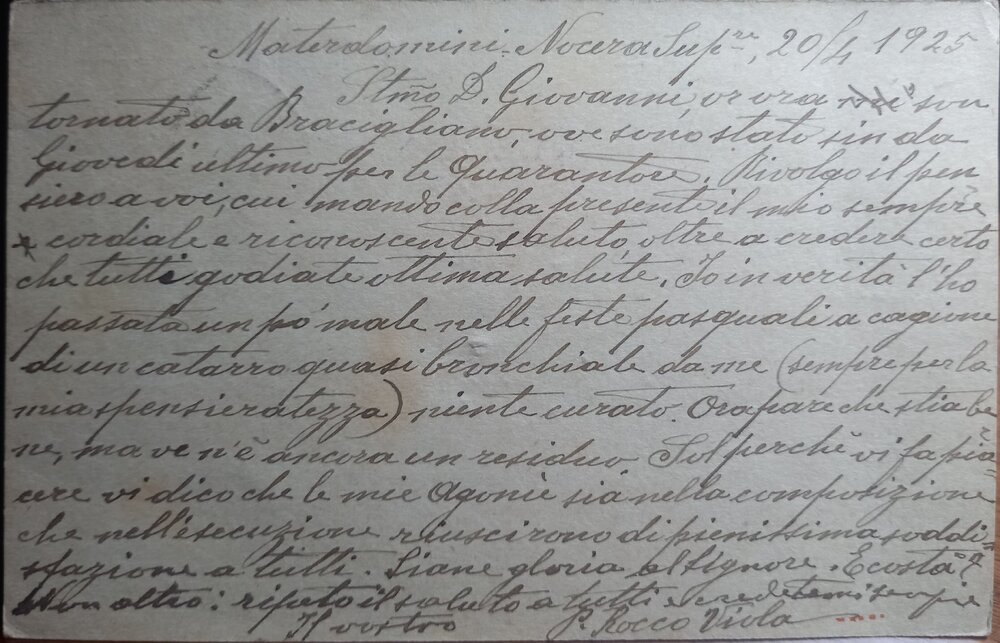 Materdomini-Nocera Sup.re, 20/4 1925
Ill.mo D. Giovanni, or ora son
tornato da Bracigliano ove sono stato sin da
Giovedi ultimo per le Quarantore. Rivolgo il pen
siero a voi, cui mando colla presente il mio sempre
cordiale e riconoscente saluto oltre a credere certo
che tutti godiate ottima salute. Io in verità l'ho
passata un pó male nelle feste pasquali a cagione
di un catarro quasi bronchiale da me (sempre per la
mia spensieratezza) niente curato. Ora pare che stia be
ne, ma ve n'è ancora un residuo. Sol perchè vi fa pia=
cere vi dico che le mie Agonie sia nella composizione
che nell'esecuzione riuscirono di pienissima soddi=
sfazione a tutti. Siane gloria al Signore. E costà?
Non altro: ripeto il saluto a tutti e credetemi sempre
Il vostro P. Rocco Viola